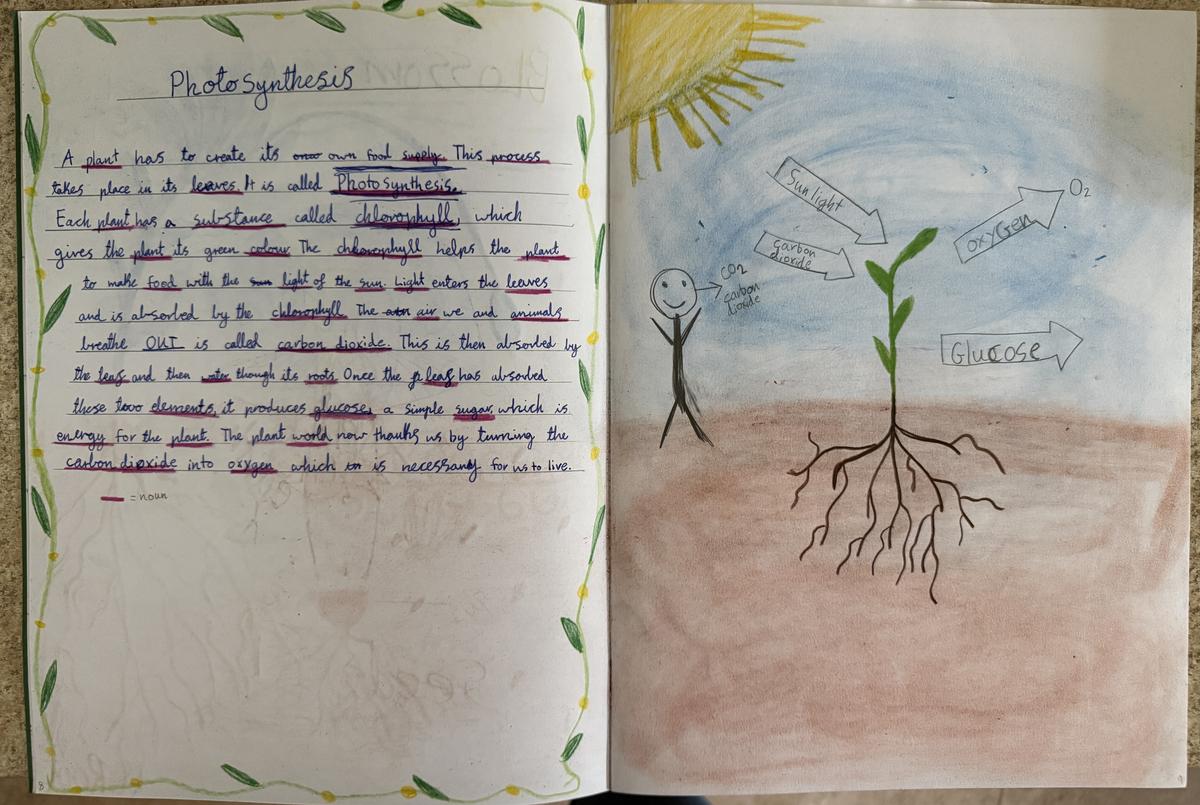 Photosynthesis
A plant has to create its own food supply. This process
takes place in its leaves. It is called Photosynthesis.
Each plant has a substance called chlorophyll, which
gives the plant its green colour. The chlorophyll helps the plant
to make food with the light of the sun. Light enters the leaves
and is absorbed by the chlorophyll. The air we and animals
breathe OUT is called carbon dioxide. This is then absorbed by
the leaf and then water though its roots. Once the leaf has absorbed
these two elements, it produces glucose, a simple sugar, which is
energy for the plant. The plant world now thanks us by turning the
carbon dioxide into oxygen which is necessary for us to live.
= noun
8
Sunlight
carbon
dioxide
CO2
carbon
dioxide
oxyGen
O2
Glucose
9